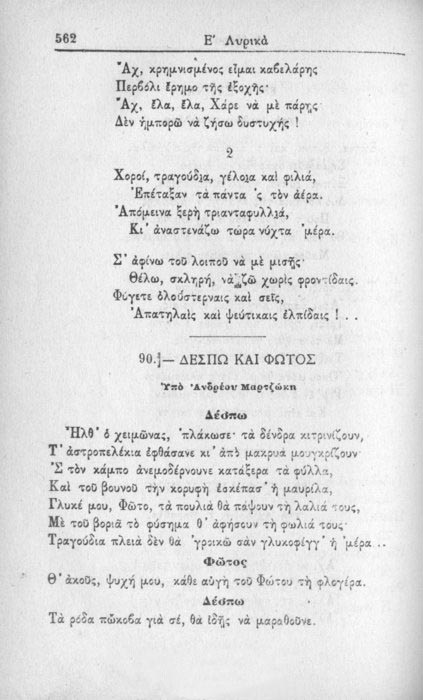 562
Ε' Λυρικὰ
Ἄχ, κρημνισμένος εἶμαι καβελάρης
Περβόλι ἔρημο τῆς ἐξοχῆς·
Ἄχ, ἔλα, ἔλα, Χάρε νὰ μὲ πάρῃς
Δὲν ἠμπορῶ νὰ ζήσω δυστυχής !
2
Χοροί, τραγούδια, γέλοια καὶ φιλιά,
Ἐπέταξαν τὰ πάντα 'ς τὸν ἀέρα.
Ἀπόμεινα ξερὴ τριανταφυλλιά,
Κι' ἀναστενάζω τώρα νύχτα 'μέρα.
Σ' ἀφίνω τοῦ λοιποῦ νὰ μὲ μισῇς·
Θέλω, σκληρή, νὰ ζῶ χωρὶς φροντίδαις.
Φύγετε ὁλούστερναις καὶ σεῖς,
Ἀπατηλαὶς καὶ ψεύτικαις ἐλπίδαις ! . .
90.— ΔΕΣΠΩ ΚΑΙ ΦΩΤΟΣ
Ὑπὸ Ἀνδρέου Μαρτζώκη
Δέσπω
Ἦλθ' ὁ χειμῶνας, 'πλάκωσε· τὰ δένδρα κιτρινίζουν,
Τ' ἀστροπελέκια ἐφθάσανε κι' ἀπὸ μακρυὰ μουγκρίζουν·
Σ τὸν κάμπο ἀνεμοδέρνουνε κατάξερα τὰ φύλλα,
Καὶ τοῦ βουνοῦ τὴν κορυφὴ ἐσκέπασ' ἡ μαυρίλα,
Γλυκέ μου, Φῶτο, τὰ πουλιὰ θὰ πάψουν τὴ λαλιά τους,
Μὲ τοῦ βοριᾶ τὸ φύσημα θ' ἀφήσουν τὴ φωλιά τους·
Τραγούδια πλειὰ δὲν θὰ 'γροικῶ σὰν γλυκοφέγγ' ἡ μέρα ..
Φῶτος
Θ' ἀκοῦς, ψυχή μου, κάθε αὐγὴ τοῦ Φώτου τὴ φλογέρα.
Δέσπω
Τὰ ρόδα πὤκοβα γιὰ σέ, θὰ ἰδῇς νὰ μαραθοῦνε.